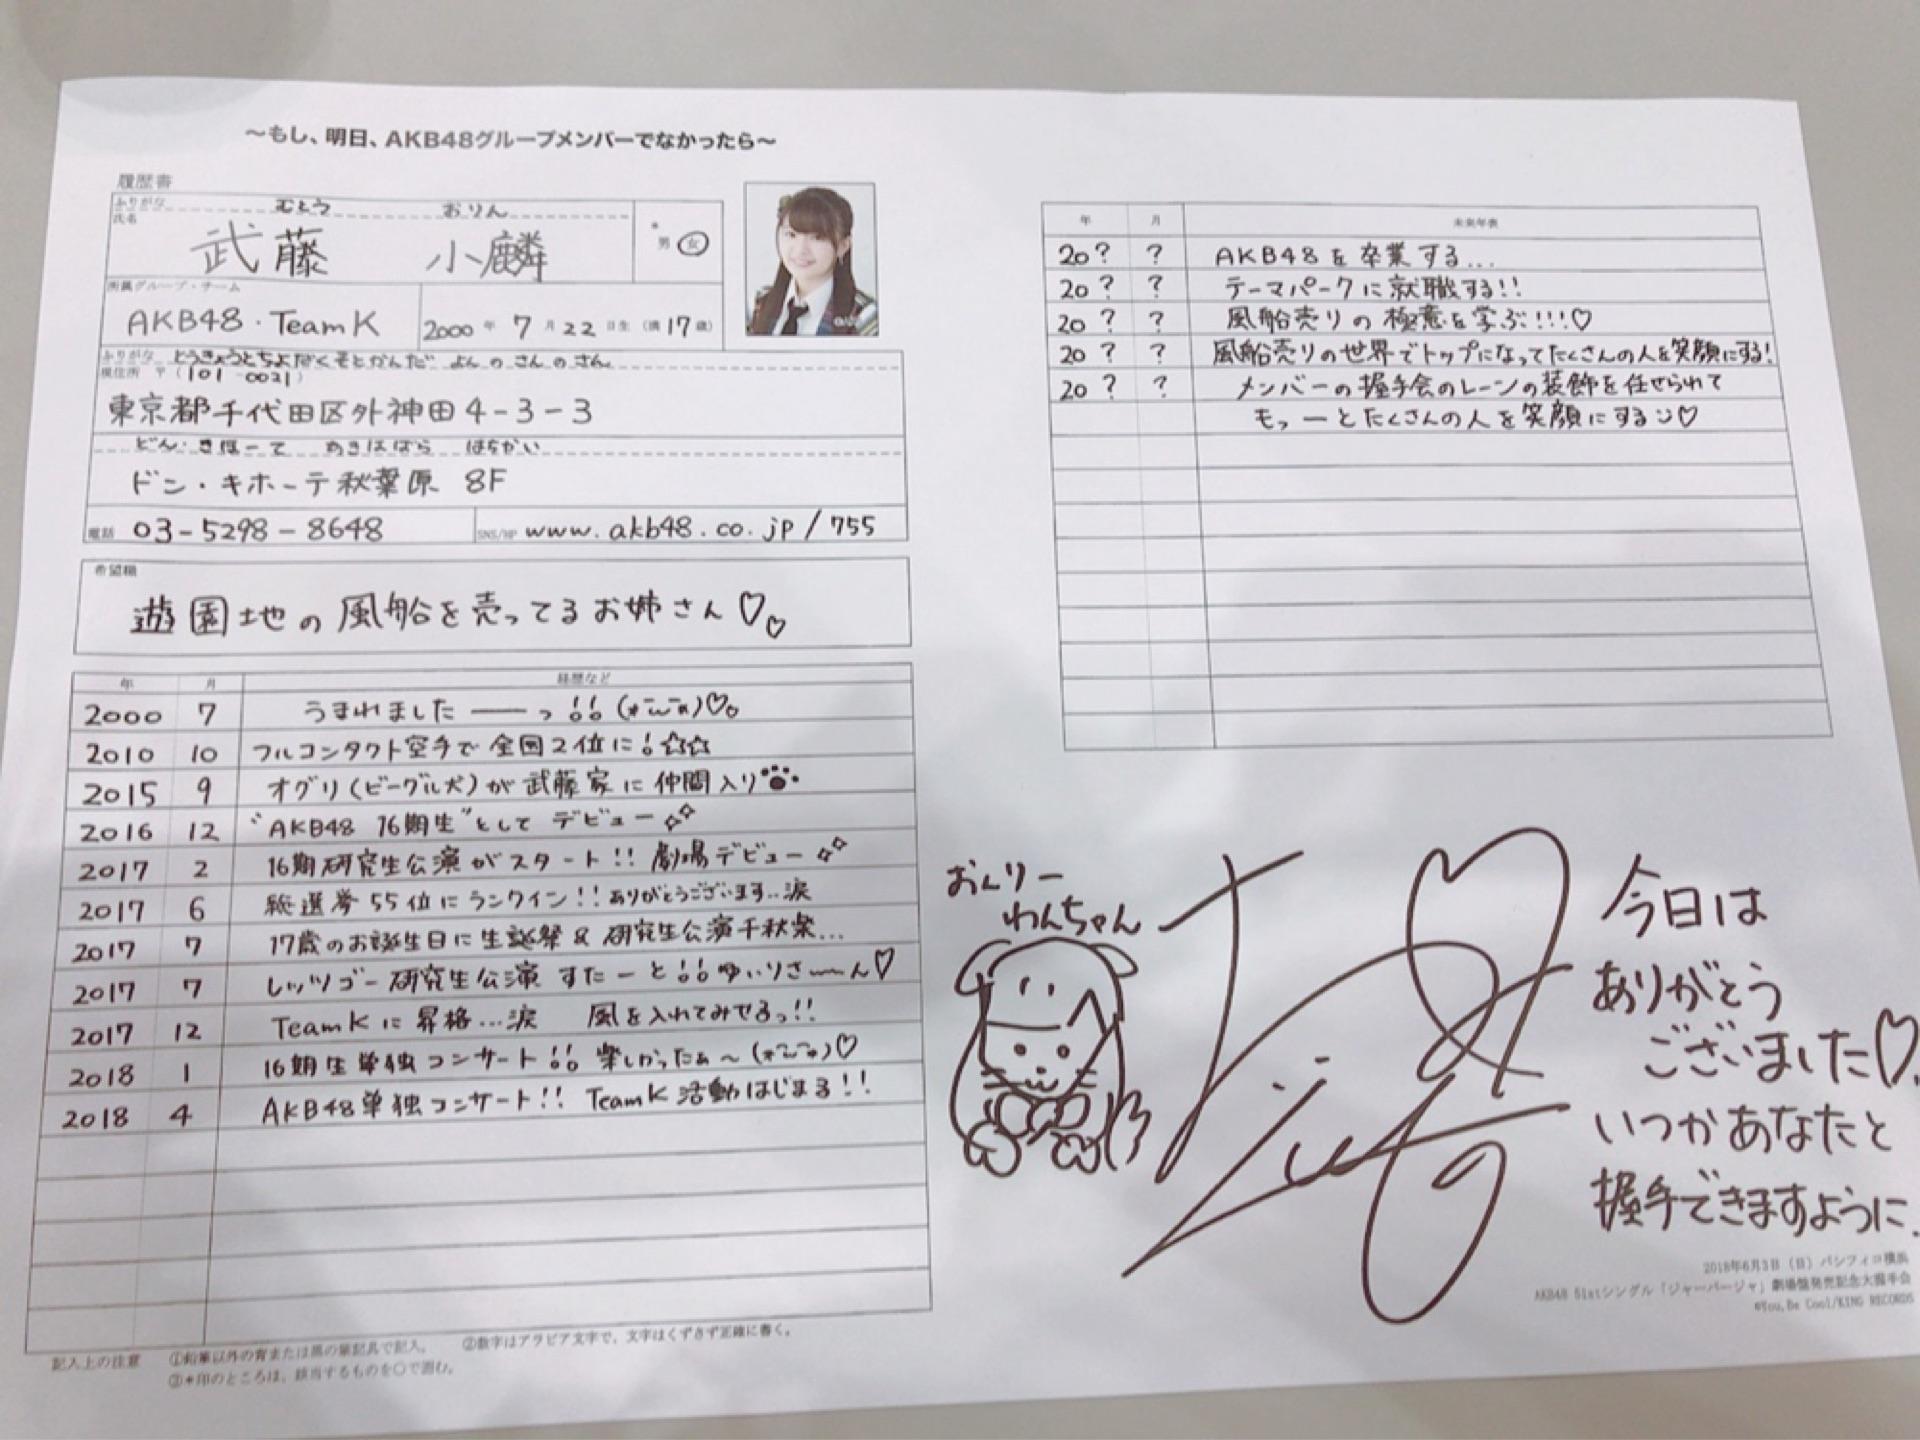 ～もし、明日、AKB48グループメンバーでなかったら～
履歴書
ふりがな むとう おりん
氏名 武藤 小麟
* 男 女
所属グループ・チーム
AKB48・TeamK
2000年 7月 22日生（満17歳）
ふりがな とうきょうとちよだくそとかんだ よんのさんのさん
現住所 〒（101-0021）
東京都千代田区外神田4-3-3
どん・きほーて あきはばら はちかい
ドン・キホーテ秋葉原 8F
電話 03-5298-8648
SNS/HP www.akb48.co.jp/755
希望職
遊園地の風船を売ってるお姉さん♡♡
年 月 経歴など
2000 7 うまれました――っ!!
2010 10 フルコンタクト空手で全国2位に!☆☆
2015 9 オグリ(ビーグル犬)が武藤家に仲間入り
2016 12 “AKB48 16期生”として デビュー
2017 2 16期研究生公演がスタート!! 劇場デビュー
2017 6 総選挙55位にランクイン!!ありがとうございます..涙
2017 7 17歳のお誕生日に生誕祭&研究生公演千秋楽...
2017 7 レッツゴー研究生公演 すたーと!!ゆいりさ～ん♡
2017 12 TeamKに昇格...涙 風を入れてみせるっ!!
2018 1 16期生単独コンサート!! 楽しかったぁ～
2018 4 AKB48単独コンサート!! TeamK活動はじまる!!
記入上の注意 ①鉛筆以外の青または黒の筆記具で記入。 ②数字はアラビア文字で、文字はくずさず正確に書く。
③*印のところは、該当するものを○で囲む。
年 月 未来年表
20? ? AKB48を卒業する...
20? ? テーマパークに就職する!!
20? ? 風船売りの極意を学ぶ!!!♡
20? ? 風船売りの世界でトップになってたくさんの人を笑顔にする!
20? ? メンバーの握手会のレーンの装飾を任せられて
もっーとたくさんの人を笑顔にする♡
おんりー
わんちゃん
今日は
ありがとう
ございました♡
いつかあなたと
握手できますように.
2018年6月3日（日）パシフィコ横浜
AKB48 51stシングル「ジャーバージャ」劇場盤発売記念大握手会
©You, Be Cool/KING RECORDS